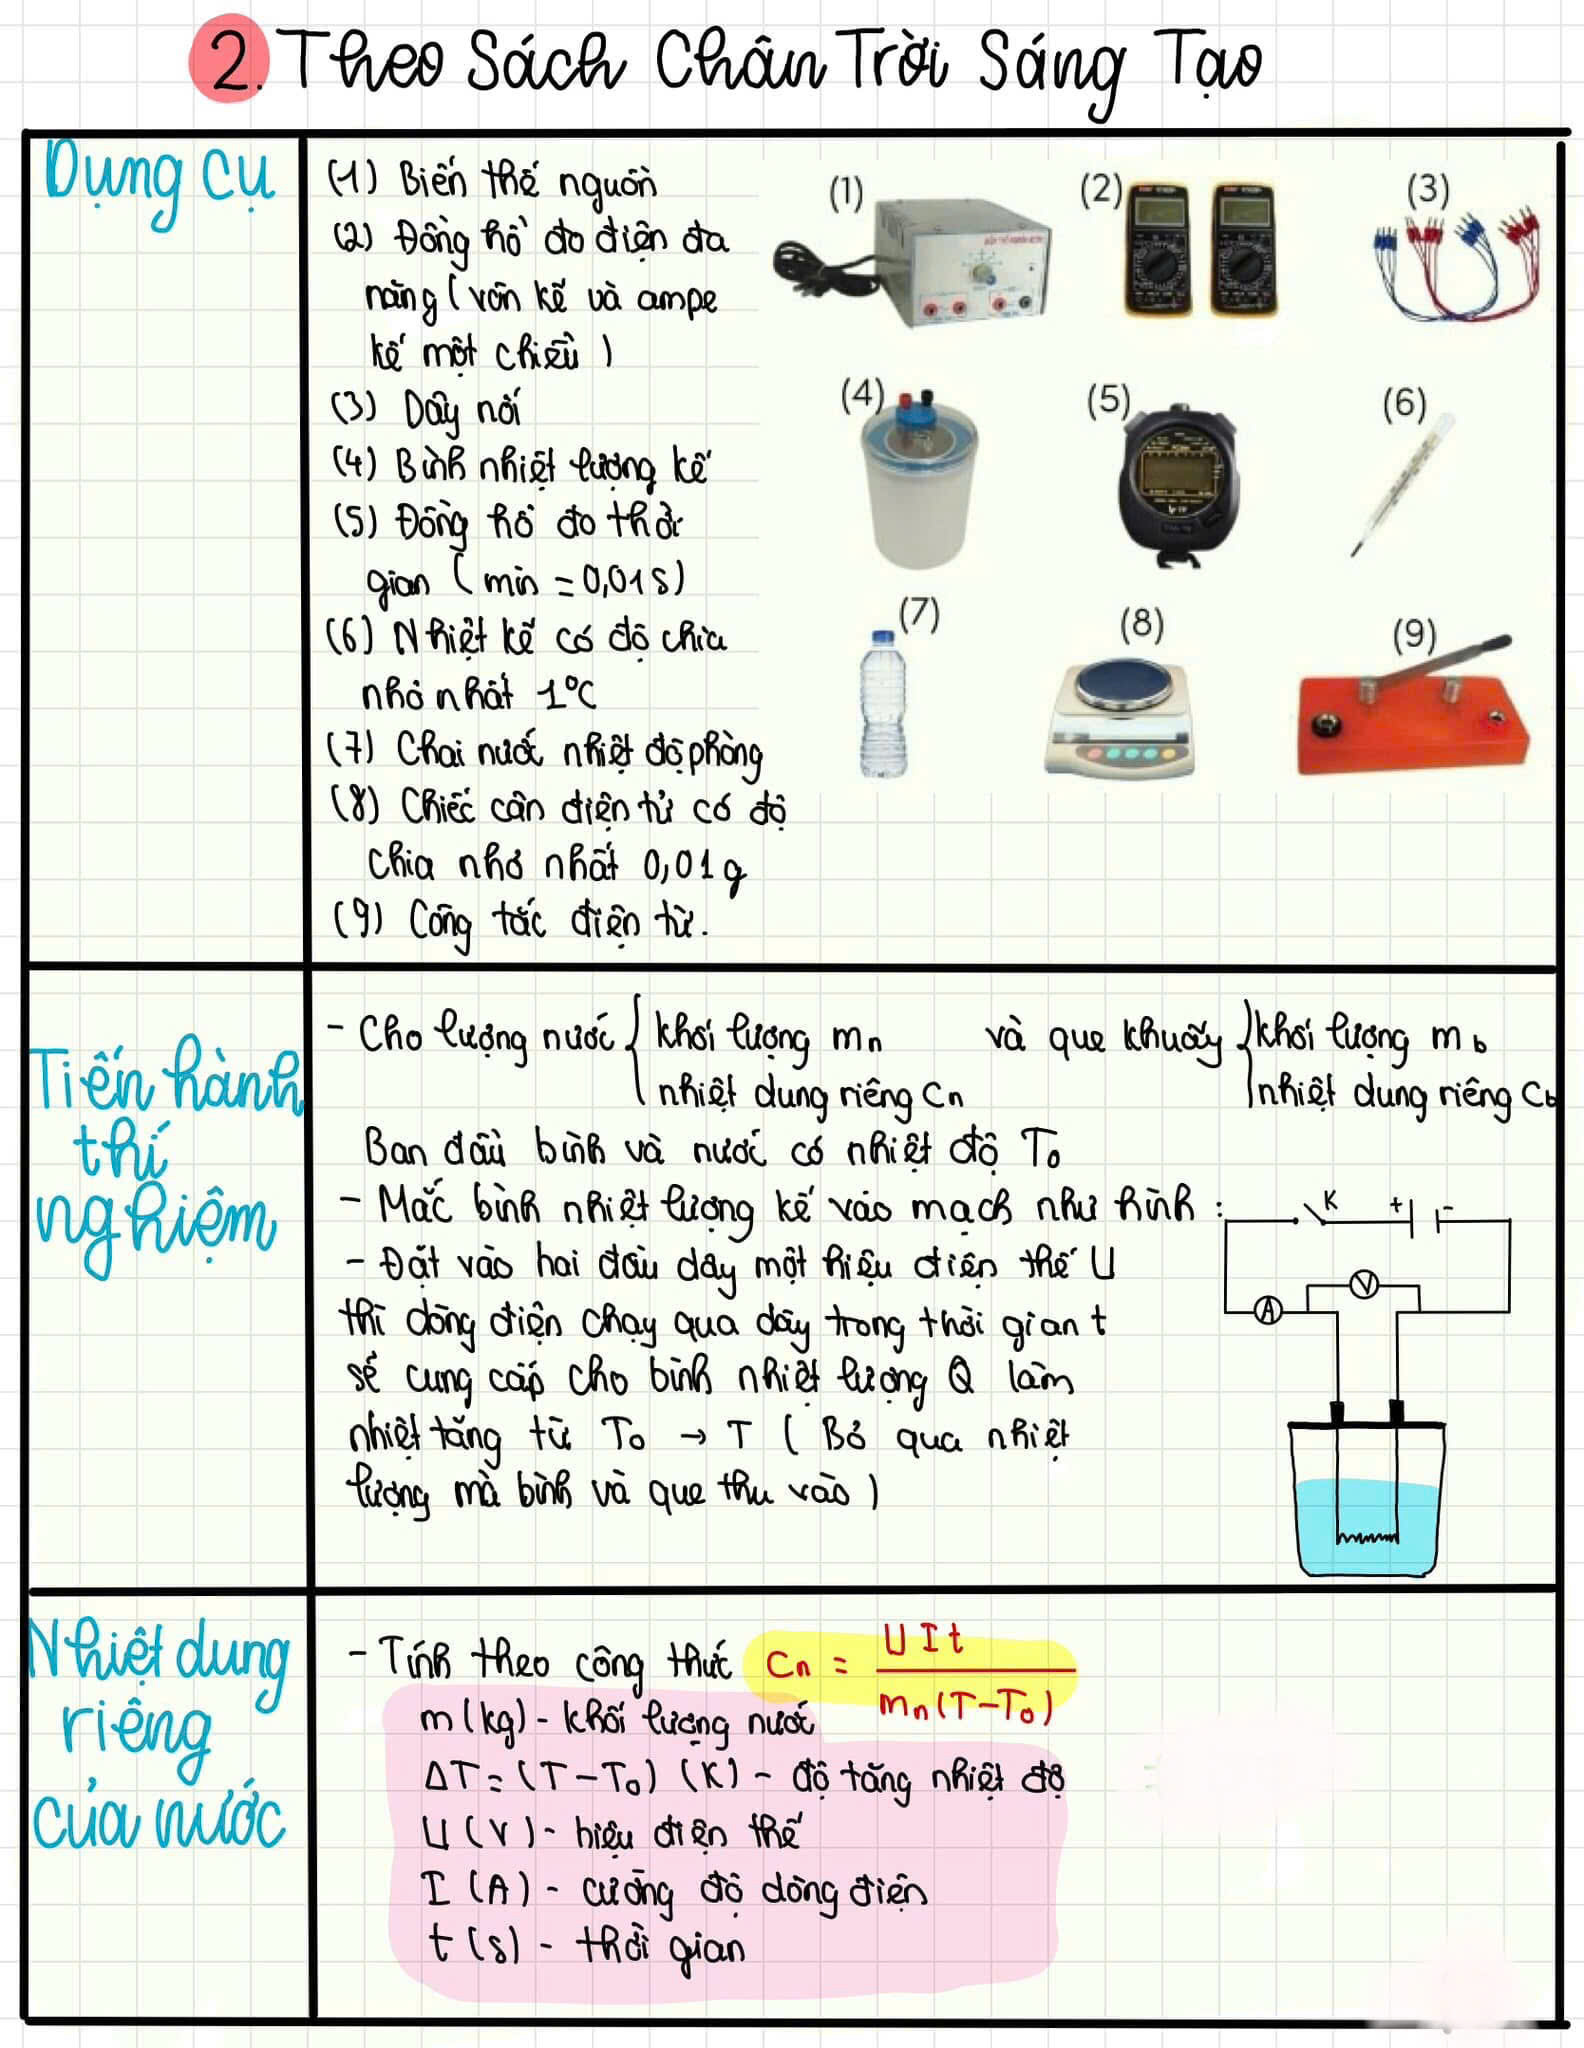 2. Theo Sách Chân Trời Sáng Tạo
Dụng cụ
(1) Biến thế nguồn
(2) Đồng hồ đo điện đa
năng (vôn kế và ampe
kế một chiều)
(3) Dây nối
(4) Bình nhiệt lượng kế
(5) Đồng hồ đo thời
gian (min = 0,01s)
(6) Nhiệt kế có độ chia
nhỏ nhất 1°C
(7) Chai nước nhiệt độ phòng
(8) Chiếc cân điện tử có độ
chia nhỏ nhất 0,01g
(9) Công tắc điện từ.
(1) (2) (3)
(4) (5) (6)
(7) (8) (9)
Tiến hành
thí
nghiệm
- Cho lượng nước { khối lượng mn và que khuấy { khối lượng mb
nhiệt dung riêng Cn nhiệt dung riêng Cb
Ban đầu bình và nước có nhiệt độ T₀
- Mắc bình nhiệt lượng kế vào mạch như hình :
- Đặt vào hai đầu dây một hiệu điện thế U
thì dòng điện chạy qua dây trong thời gian t
sẽ cung cấp cho bình nhiệt lượng Q làm
nhiệt tăng từ T₀ → T ( Bỏ qua nhiệt
lượng mà bình và que thu vào )
K + -
V
A
Nhiệt dung
riêng
của nước
- Tính theo công thức Cn = UIt / mn(T-T₀)
m(kg) - khối lượng nước
ΔT = (T-T₀) (K) - độ tăng nhiệt độ
U (V) - hiệu điện thế
I (A) - cường độ dòng điện
t (s) - thời gian